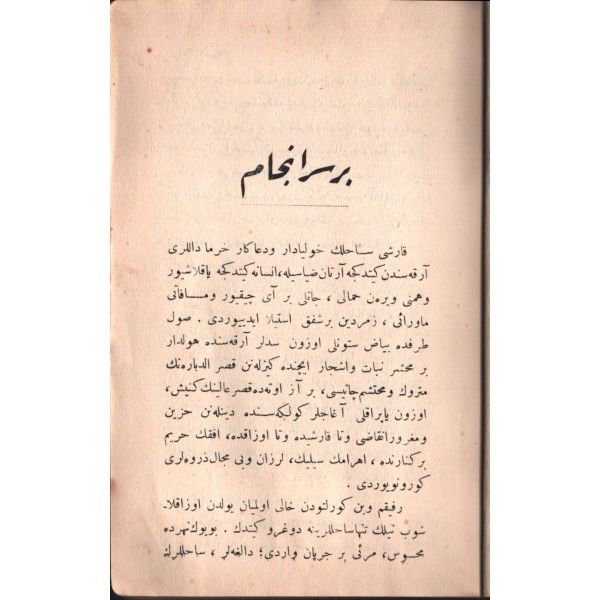 بر سر انجام
قارشی ساحلك خولیادار ودعاكار خرما داللری
آرقه‌سندن كیتدكجه آرتان ضیاسیله، انسانه كیتدكجه یاقلاشیور
وهمنی ویره‌ن جمالی ، جانلی بر آی چیقیور ومسافاتی
ماورائی ، زمردین بر شفق استیلا ایدییوردی . صول
طرفده بیاض ستونلی اوزون سدلر آرقه‌سنده هولدار
بر محشر نبات واشجار ایچنده كیزله‌نن قصر الدباره‌نك
متروك ومحتشم چاتیسی، بر آز اوته‌ده قصر عالینك كنیش،
اوزون یاپراقلی آغاجلر كولكه‌سنده دینله‌نن حزین
ومغرور انقاضی وتا قارشیده وتا اوزاقده، افقك حریم
بر كنارنده ، اهرامك سیلیك، لرزان ونی مجال ذروه‌لری
كورونویوردی .
رفیقم وبن كورلتودن خالی اولمیان یولدن اوزاقلا-
شوب نیلك تنها ساحللرینه دوغرو كیتدك . بویوك نهرده
محسوس، مرئی بر جریان واردی؛ دالغه‌لر ، ساحللرك